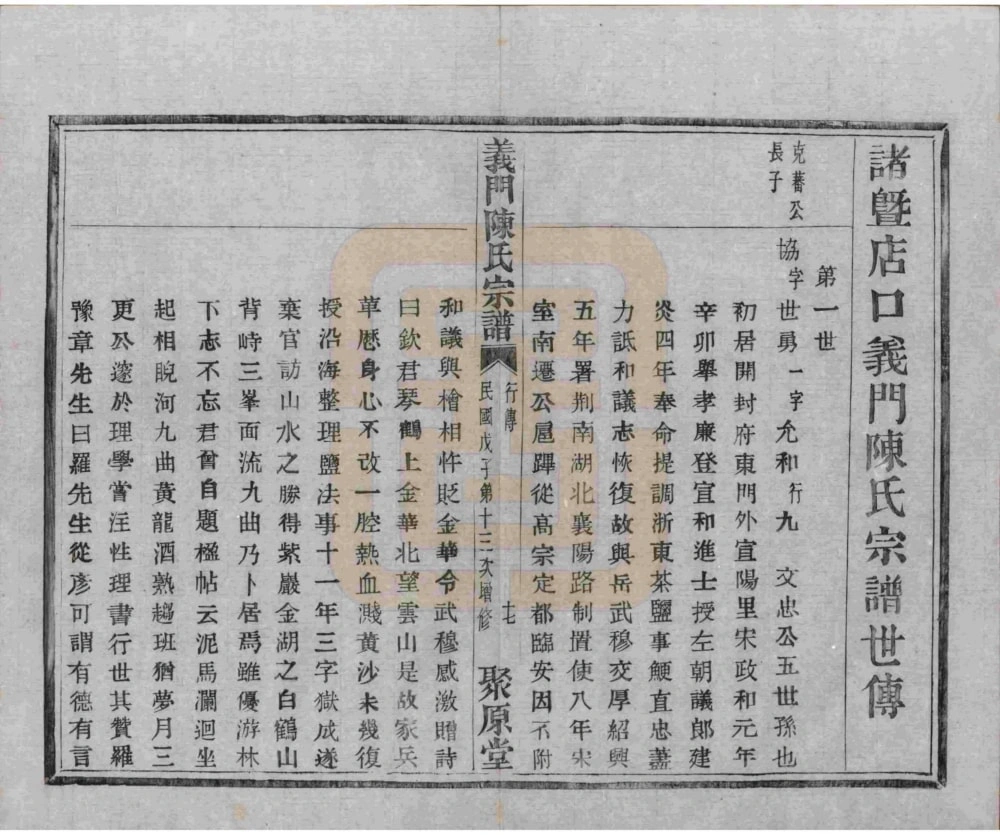 諸暨店口義門陳氏宗譜世傳
第一世
克蕃公
長子
協字世勇一字允和行九 文忠公五世孫也
初居開封府東門外宣陽里宋政和元年
辛卯舉孝廉登宣和進士授左朝議郎建
炎四年奉命提調浙東茶鹽事鯁直忠藎
力詆和議志恢復故與岳武穆交厚紹興
五年署荆南湖北襄陽路制置使八年宋
室南遷公扈蹕從高宗定都臨安因不附
義門陳氏宗譜 行傳 民國戊子第十三次增修 七 聚原堂
和議與檜相忤貶金華令武穆感激贈詩
曰欽君琴鶴上金華北望雲山是故家兵
革歷身心不改一腔熱血濺黃沙未幾復
授沿海整理鹽法事十一年三字獄成遂
棄官訪山水之勝得紫巖金湖之白鶴山
背峙三峯面流九曲乃卜居焉雖優游林
下志不忘君嘗自題楹帖云泥馬瀾迴坐
起相睨河九曲黃龍酒熟趨班猶夢月三
更公邃於理學嘗注性理書行世其贊羅
豫章先生曰羅先生從彥可謂有德有言